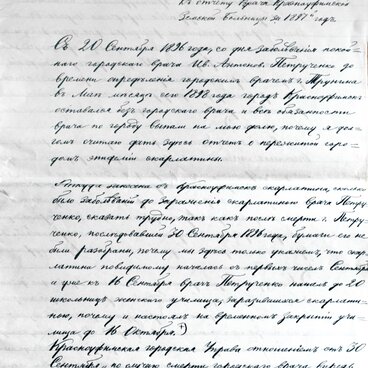 къ отчету врача Красноуфимской
Земской больницы за 1897й годъ.
Съ 20 Сентября 1896 года, со дня заболѣванія покой-
наго городского врача Ив. Антонов. Петрученко до
времени опредѣленія городскимъ врачемъ г. Трунина
въ Маѣ мѣсяцѣ сего 1898 года городъ Красноуфимскъ
оставался безъ городского врача и всѣ обязанности
врача по городу выпали на мою долю, почему я дол-
гомъ считаю дать здѣсь отчетъ о пережитой горо-
домъ эпидеміи скарлатины.
Откуда занесена въ Красноуфимскъ скарлатина, сколько
было заболѣваній до зараженія скарлатиною врача Петру-
ченко, сказать трудно, такъ какъ послѣ смерти г. Петру-
ченко, послѣдовавшей 30 Сентября 1896 года, бумаги его не
были разобраны, почему мы здѣсь только укажемъ, что скар-
латина повидимому началась съ первыхъ чиселъ Сентября
и уже къ 16 Сентября врачъ Петрученко нашелъ до 20
школьницъ женскаго училища, заразившихся скарлати-
ною, почему и настоялъ на временномъ закрытіи учи-
лища до 16 Октября.*)
Красноуфимская городская Управа отношеніемъ отъ 30
Сентября, по случаю смерти городского врача, впредь